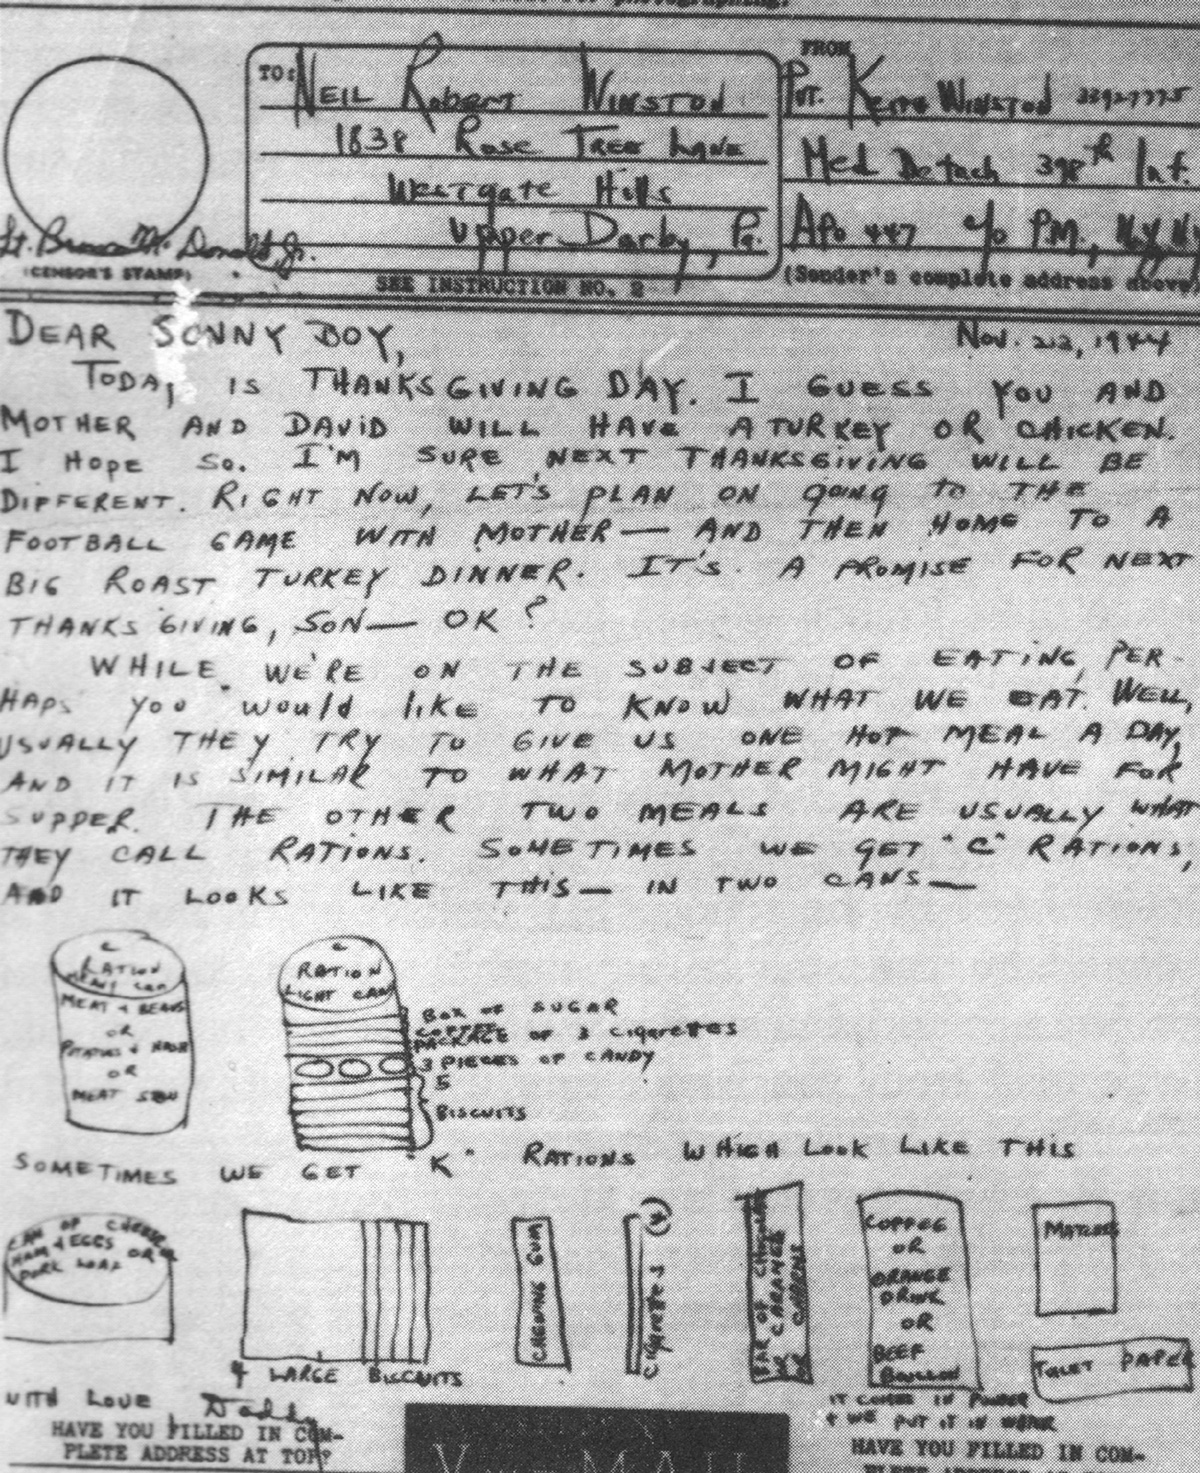 for photographing.
TO: NEIL ROBERT WINSTON
1838 ROSE TREE LANE
WESTGATE HILLS
UPPER DARBY, PA.
SEE INSTRUCTION NO. 2
FROM
PVT. KEITH WINSTON 33927775
MED DETACH 398th INF.
APO 447 c/o P.M., N.Y. N.Y
(Sender's complete address above)
Lt. Bruce McDonald, Jr.
(CENSOR'S STAMP)
DEAR SONNY BOY,
NOV. 22, 1944
TODAY IS THANKSGIVING DAY. I GUESS YOU AND
MOTHER AND DAVID WILL HAVE A TURKEY OR CHICKEN.
I HOPE SO. I'M SURE NEXT THANKSGIVING WILL BE
DIFFERENT. RIGHT NOW, LET'S PLAN ON GOING TO THE
FOOTBALL GAME WITH MOTHER — AND THEN HOME TO A
BIG ROAST TURKEY DINNER. IT'S A PROMISE FOR NEXT
THANKSGIVING, SON — OK?
WHILE WE'RE ON THE SUBJECT OF EATING, PER-
HAPS YOU WOULD LIKE TO KNOW WHAT WE EAT. WELL,
USUALLY THEY TRY TO GIVE US ONE HOT MEAL A DAY,
AND IT IS SIMILAR TO WHAT MOTHER MIGHT HAVE FOR
SUPPER. THE OTHER TWO MEALS ARE USUALLY WHAT
THEY CALL RATIONS. SOMETIMES WE GET "C" RATIONS,
AND IT LOOKS LIKE THIS — IN TWO CANS —
C
RATION
HEAVY CAN
MEAT + BEANS
OR
POTATOES + HASH
OR
MEAT STEW
C
RATION
LIGHT CAN
BOX OF SUGAR
COFFEE
PACKAGE OF 3 CIGARETTES
3 PIECES OF CANDY
5
BISCUITS
SOMETIMES WE GET "K" RATIONS WHICH LOOK LIKE THIS
CAN OF CHEESE
HAM + EGGS OR
PORK LOAF
4 LARGE BISCCUITS
CHEWING GUM
CIGARETTES (4)
BAR OF CHOCOLATE
OR CARAMEL
OR CHARMS
COFFEE
OR
ORANGE
DRINK
OR
BEEF
BOUILLON
IT COMES IN POWDER
+ WE PUT IT IN WATER
MATCHES
TOILET PAPER
WITH LOVE Daddy
HAVE YOU FILLED IN COM-
PLETE ADDRESS AT TOP?
V MAIL
HAVE YOU FILLED IN COM-
PLETE ADDRESS